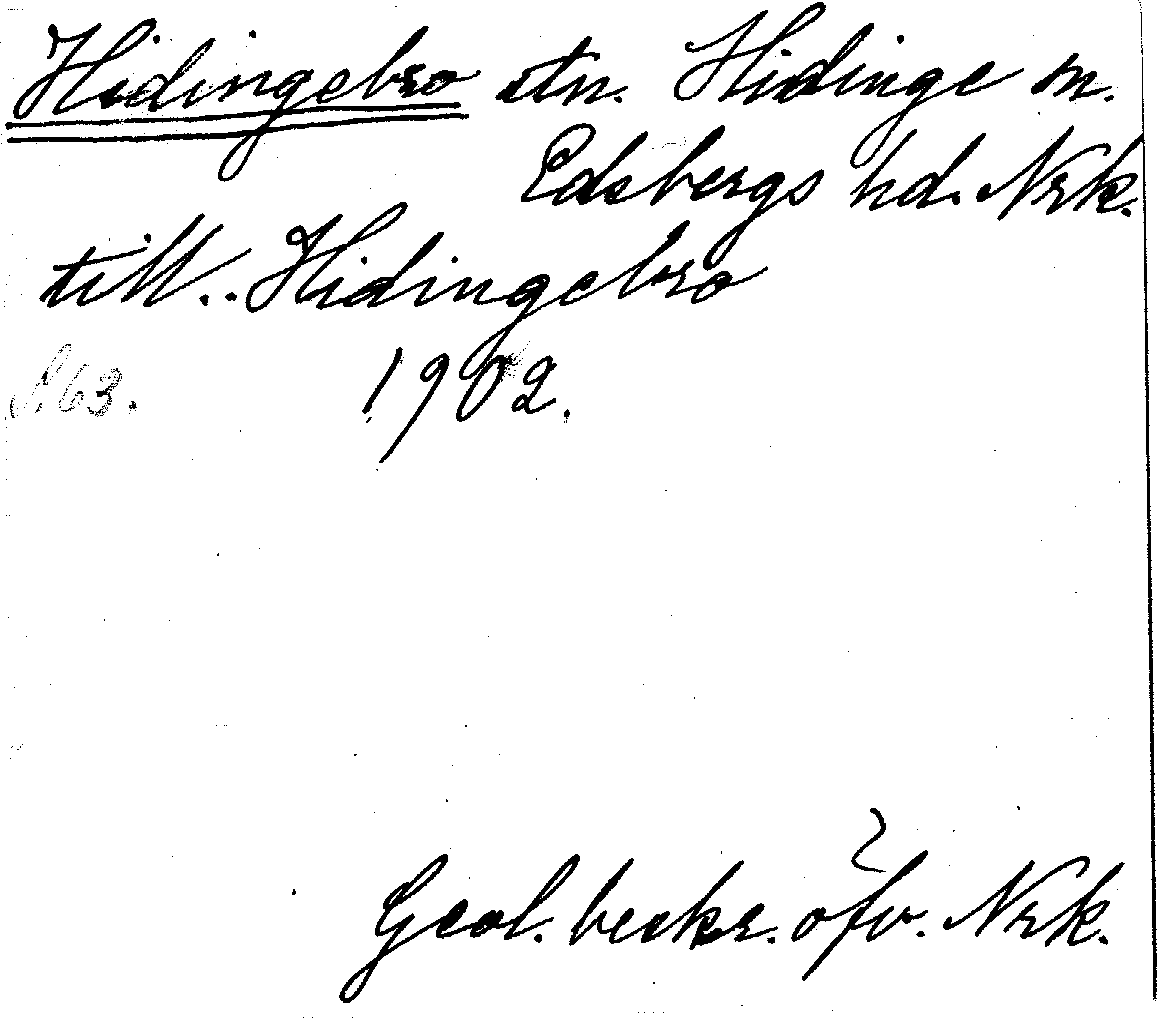 Hidingebro stn. Hidinge sn.
Edsbergs hd. Nrk.
till.. Hidingebro
S. 63. 1902.
Geol. beskr. öfv. Nrk.